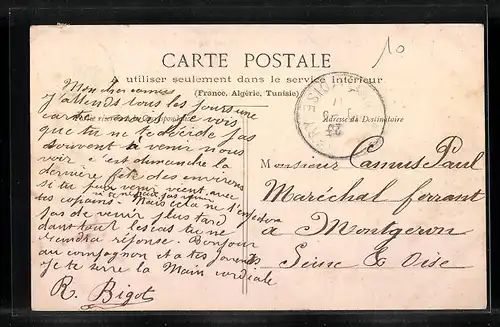 CARTE POSTALE
A utiliser seulement dans le service intérieur
(France, Algérie, Tunisie)
10
Adresse du Destinataire
Mon cher camus
J'attends tous les jours une
carte mais je vois
que tu ne te décide pas
souvent à venir nous
voir c'est dimanche la
dernière fête des environs
si tu peux venir vient avec
tes copains Mais cela ne t'empêchera
pas de venir plus tard
dans tout les cas tu me
rendra réponse. Bonjour
au compagnon et a tes parents
Je te serre la Main cordiale
R. Bigot
Monsieur Camus Paul
Maréchal ferrant
à Montgeron
Seine & Oise